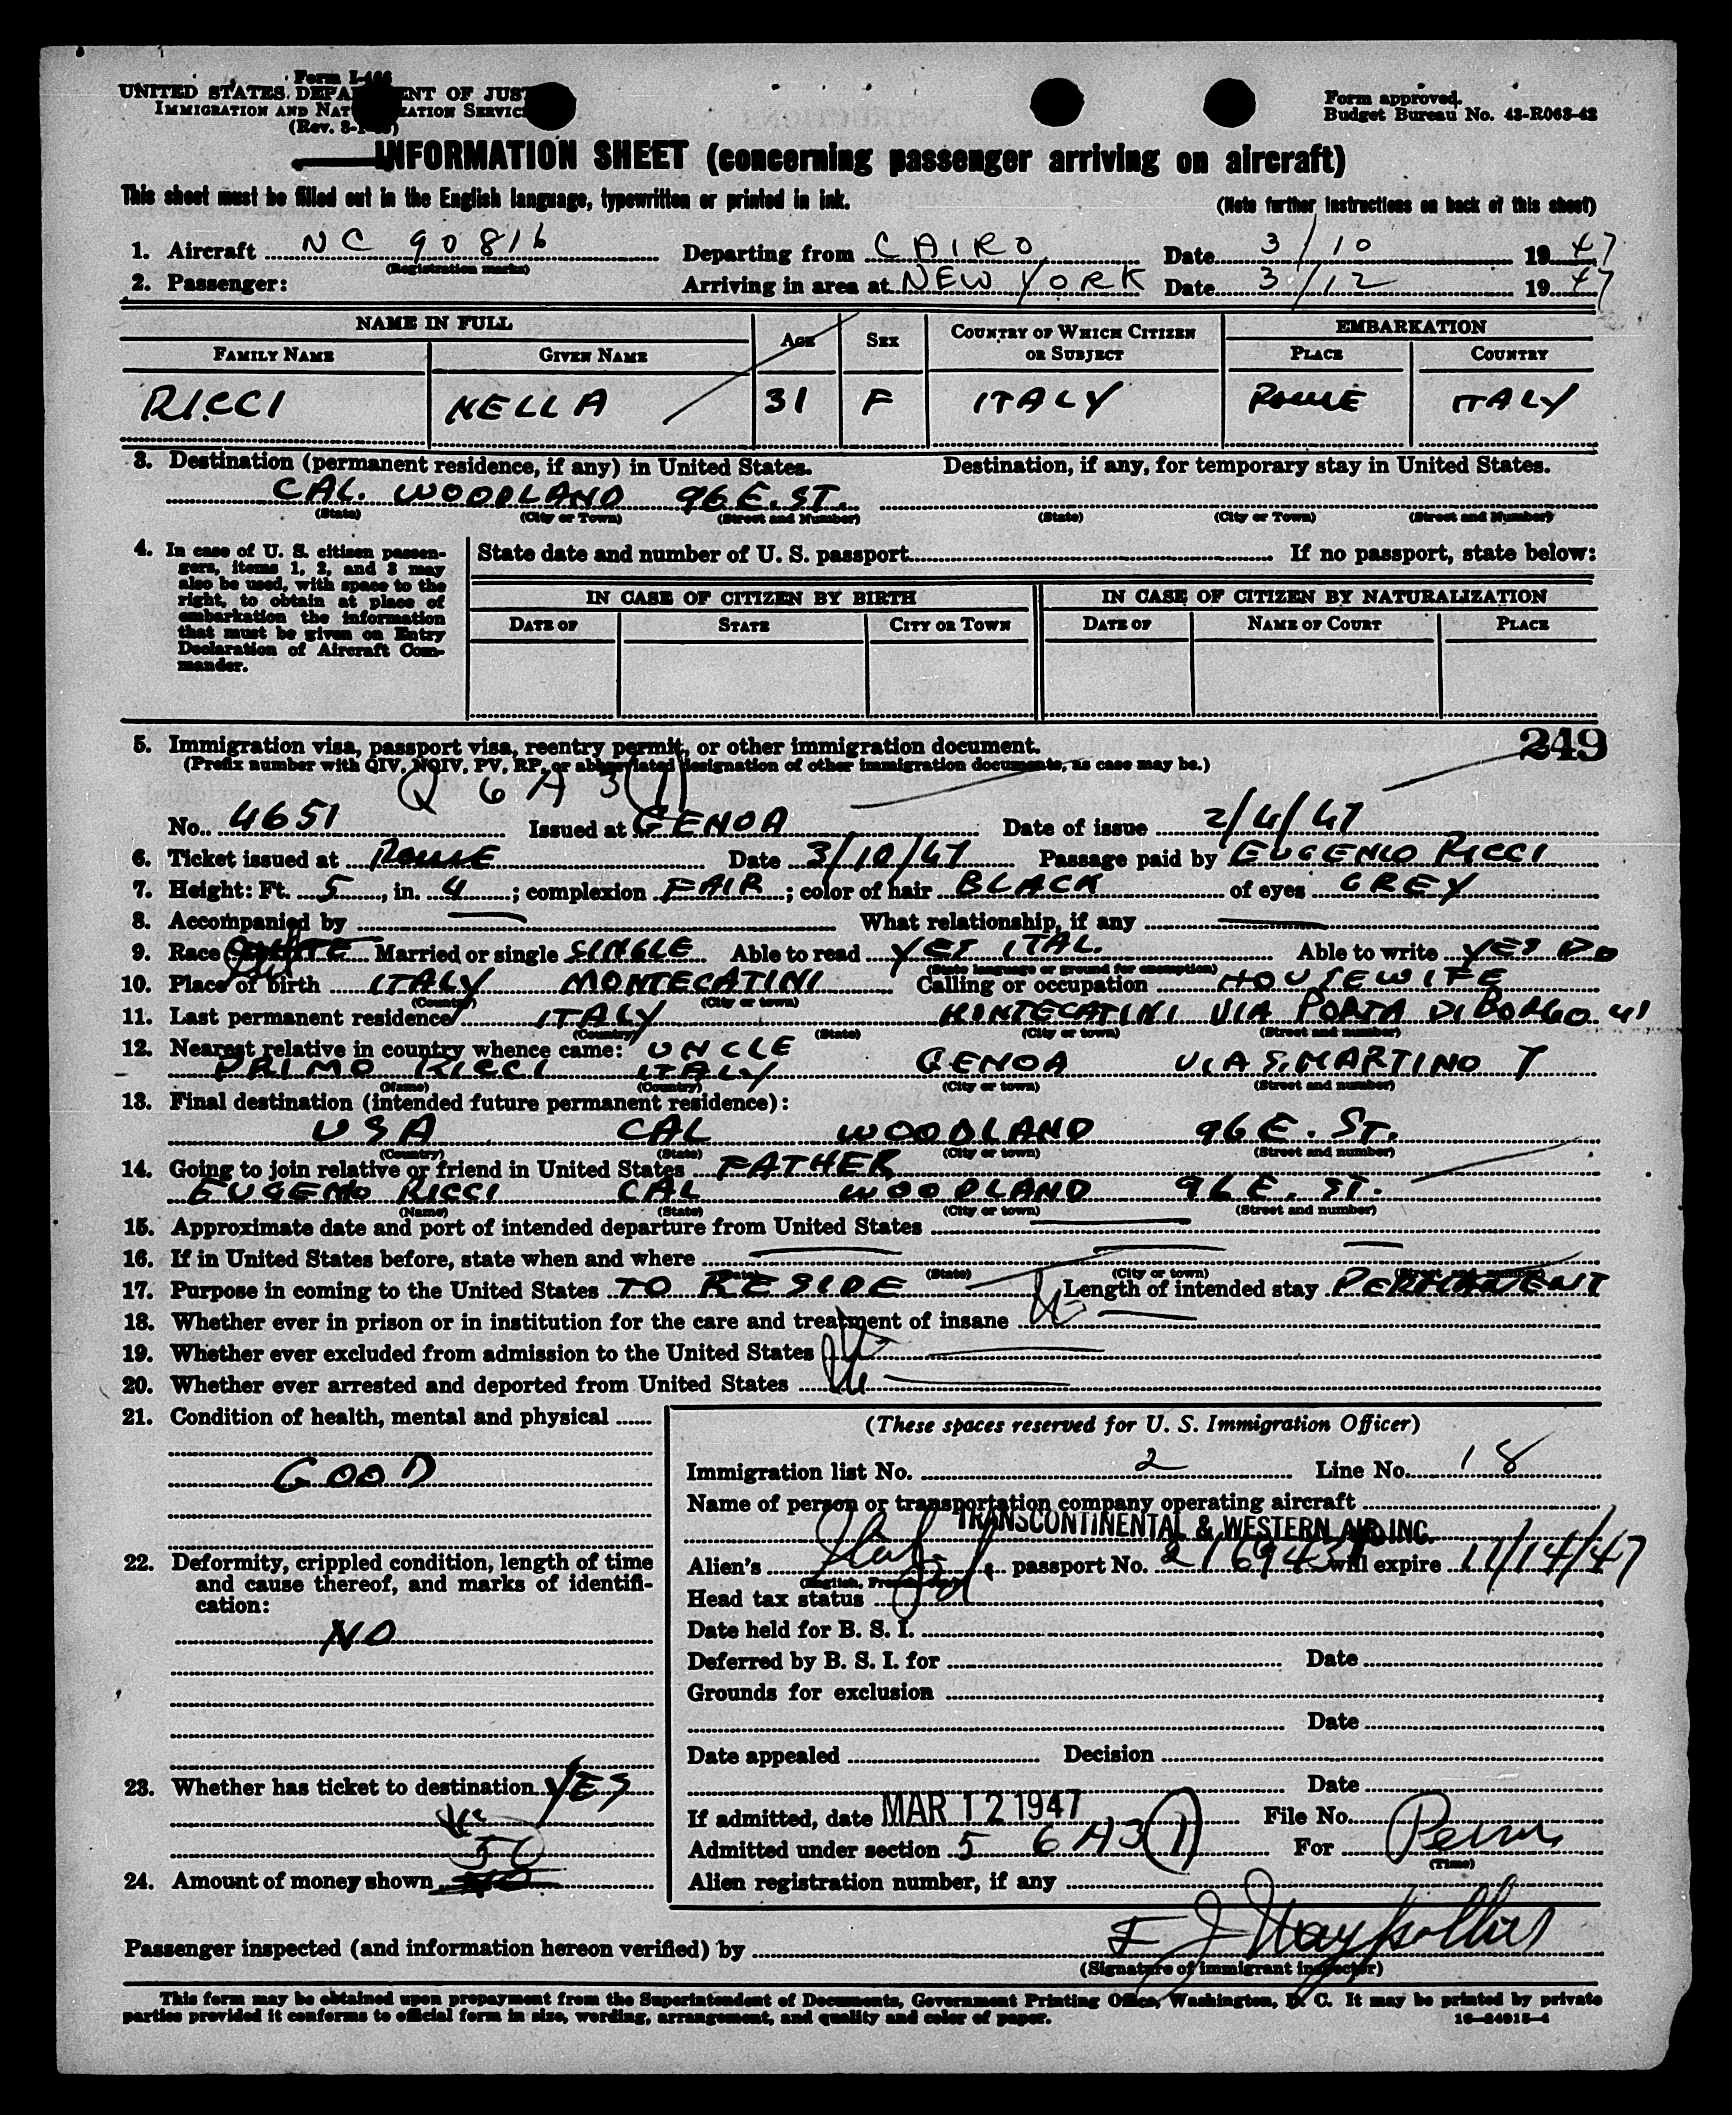 Form I-466
UNITED STATES DEPARTMENT OF JUSTICE
IMMIGRATION AND NATURALIZATION SERVICE
(Rev. 8-1-
Form approved.
Budget Bureau No. 43-R063-42
INFORMATION SHEET (concerning passenger arriving on aircraft)
This sheet must be filled out in the English language, typewritten or printed in ink.
(Note further instructions on back of this sheet)
1. Aircraft NC 90816 Departing from CAIRO Date 3/10 1947
(Registration marks)
2. Passenger: Arriving in area at NEW YORK Date 3/12 1947
NAME IN FULL AGE SEX COUNTRY OF WHICH CITIZEN OR SUBJECT EMBARKATION
FAMILY NAME GIVEN NAME PLACE COUNTRY
RICCI NELLA 31 F ITALY ROME ITALY
3. Destination (permanent residence, if any) in United States. Destination, if any, for temporary stay in United States.
CAL. WOODLAND 96 E. ST.
(State) (City or Town) (Street and Number) (State) (City or Town) (Street and Number)
4. In case of U. S. citizen passen-
gers, items 1, 2, and 3 may
also be used, with space to the
right, to obtain at place of
embarkation the information
that must be given on Entry
Declaration of Aircraft Com-
mander.
State date and number of U. S. passport If no passport, state below:
IN CASE OF CITIZEN BY BIRTH IN CASE OF CITIZEN BY NATURALIZATION
DATE OF STATE CITY OR TOWN DATE OF NAME OF COURT PLACE
5. Immigration visa, passport visa, reentry permit, or other immigration document. 249
(Prefix number with QIV, NQIV, PV, RP, or abbreviated designation of other immigration documents, as case may be.)
Q 6 A 3 (1)
No. 4651 Issued at GENOA Date of issue 2/4/47
6. Ticket issued at ROME Date 3/10/47 Passage paid by EUGENIO RICCI
7. Height: Ft. 5, in. 4; complexion FAIR; color of hair BLACK of eyes GREY
8. Accompanied by — What relationship, if any —
9. Race Married or single SINGLE Able to read YES ITAL. Able to write YES DO
(State language or ground for exemption)
10. Place of birth ITALY MONTECATINI Calling or occupation HOUSEWIFE
(Country) (City or town)
11. Last permanent residence ITALY MONTECATINI VIA PORTA DI BORGO 41
(Country) (State) (City or town) (Street and number)
12. Nearest relative in country whence came: UNCLE
PRIMO RICCI ITALY GENOA VIA S. MARTINO 7
(Name) (Country) (City or town) (Street and number)
13. Final destination (intended future permanent residence):
USA CAL WOODLAND 96 E. ST.
(Country) (State) (City or town) (Street and number)
14. Going to join relative or friend in United States FATHER
EUGENIO RICCI CAL WOODLAND 96 E. ST.
(Name) (State) (City or town) (Street and number)
15. Approximate date and port of intended departure from United States —
16. If in United States before, state when and where — — —
(Date) (State) (City or town) (Street and number)
17. Purpose in coming to the United States TO RESIDE Length of intended stay PERMANENT
18. Whether ever in prison or in institution for the care and treatment of insane —
19. Whether ever excluded from admission to the United States —
20. Whether ever arrested and deported from United States —
21. Condition of health, mental and physical
GOOD
22. Deformity, crippled condition, length of time
and cause thereof, and marks of identifi-
cation:
NO
23. Whether has ticket to destination YES
50
24. Amount of money shown
(These spaces reserved for U. S. Immigration Officer)
Immigration list No. 2 Line No. 18
Name of person or transportation company operating aircraft
TRANSCONTINENTAL & WESTERN AIR, INC.
Alien's passport No. will expire 11/14/47
Head tax status
Date held for B. S. I.
Deferred by B. S. I. for Date
Grounds for exclusion
Date
Date appealed Decision
Date
If admitted, date MAR 12 1947 File No.
Admitted under section 5 6 A3(1) For Perm
(Time)
Alien registration number, if any
Passenger inspected (and information hereon verified) by
(Signature of immigrant inspector)
This form may be obtained upon prepayment from the Superintendent of Documents, Government Printing Office, Washington, D. C. It may be printed by private
parties provided it conforms to official form in size, wording, arrangement, and quality and color of paper.
16—24915-4